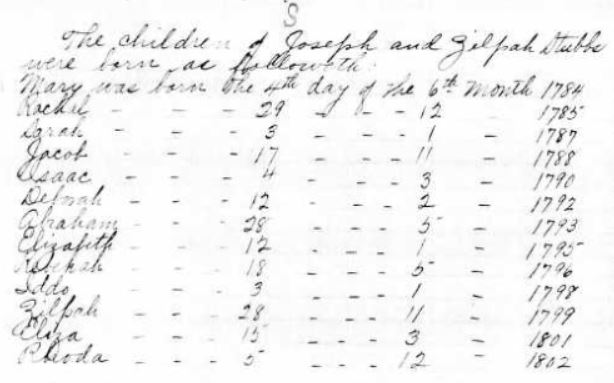 S
The children of Joseph and Zilpah Stubbs
were born as followeth:
Mary was born the 4th day of the 6th month 1784
Rachel - - - 29 - - - 12 1785
Sarah - - - 3 - - - 1 - 1787
Jacob - - - 17 - - - 11 - 1788
Isaac - - - 4 - - - 3 - 1790
Deborah - - - 12 - - - 2 - 1792
Abraham - - - 28 - - - 5 - 1793
Elizabeth - - - 12 - - - 1 - 1795
Rebekah - - - 18 - - - 5 - 1796
Iddo - - - 3 - - - 1 - 1798
Zilpah - - - 28 - - - 11 - 1799
Eliza - - - 15 - - - 3 - 1801
Rhoda - - - 5 - - - 12 - 1802